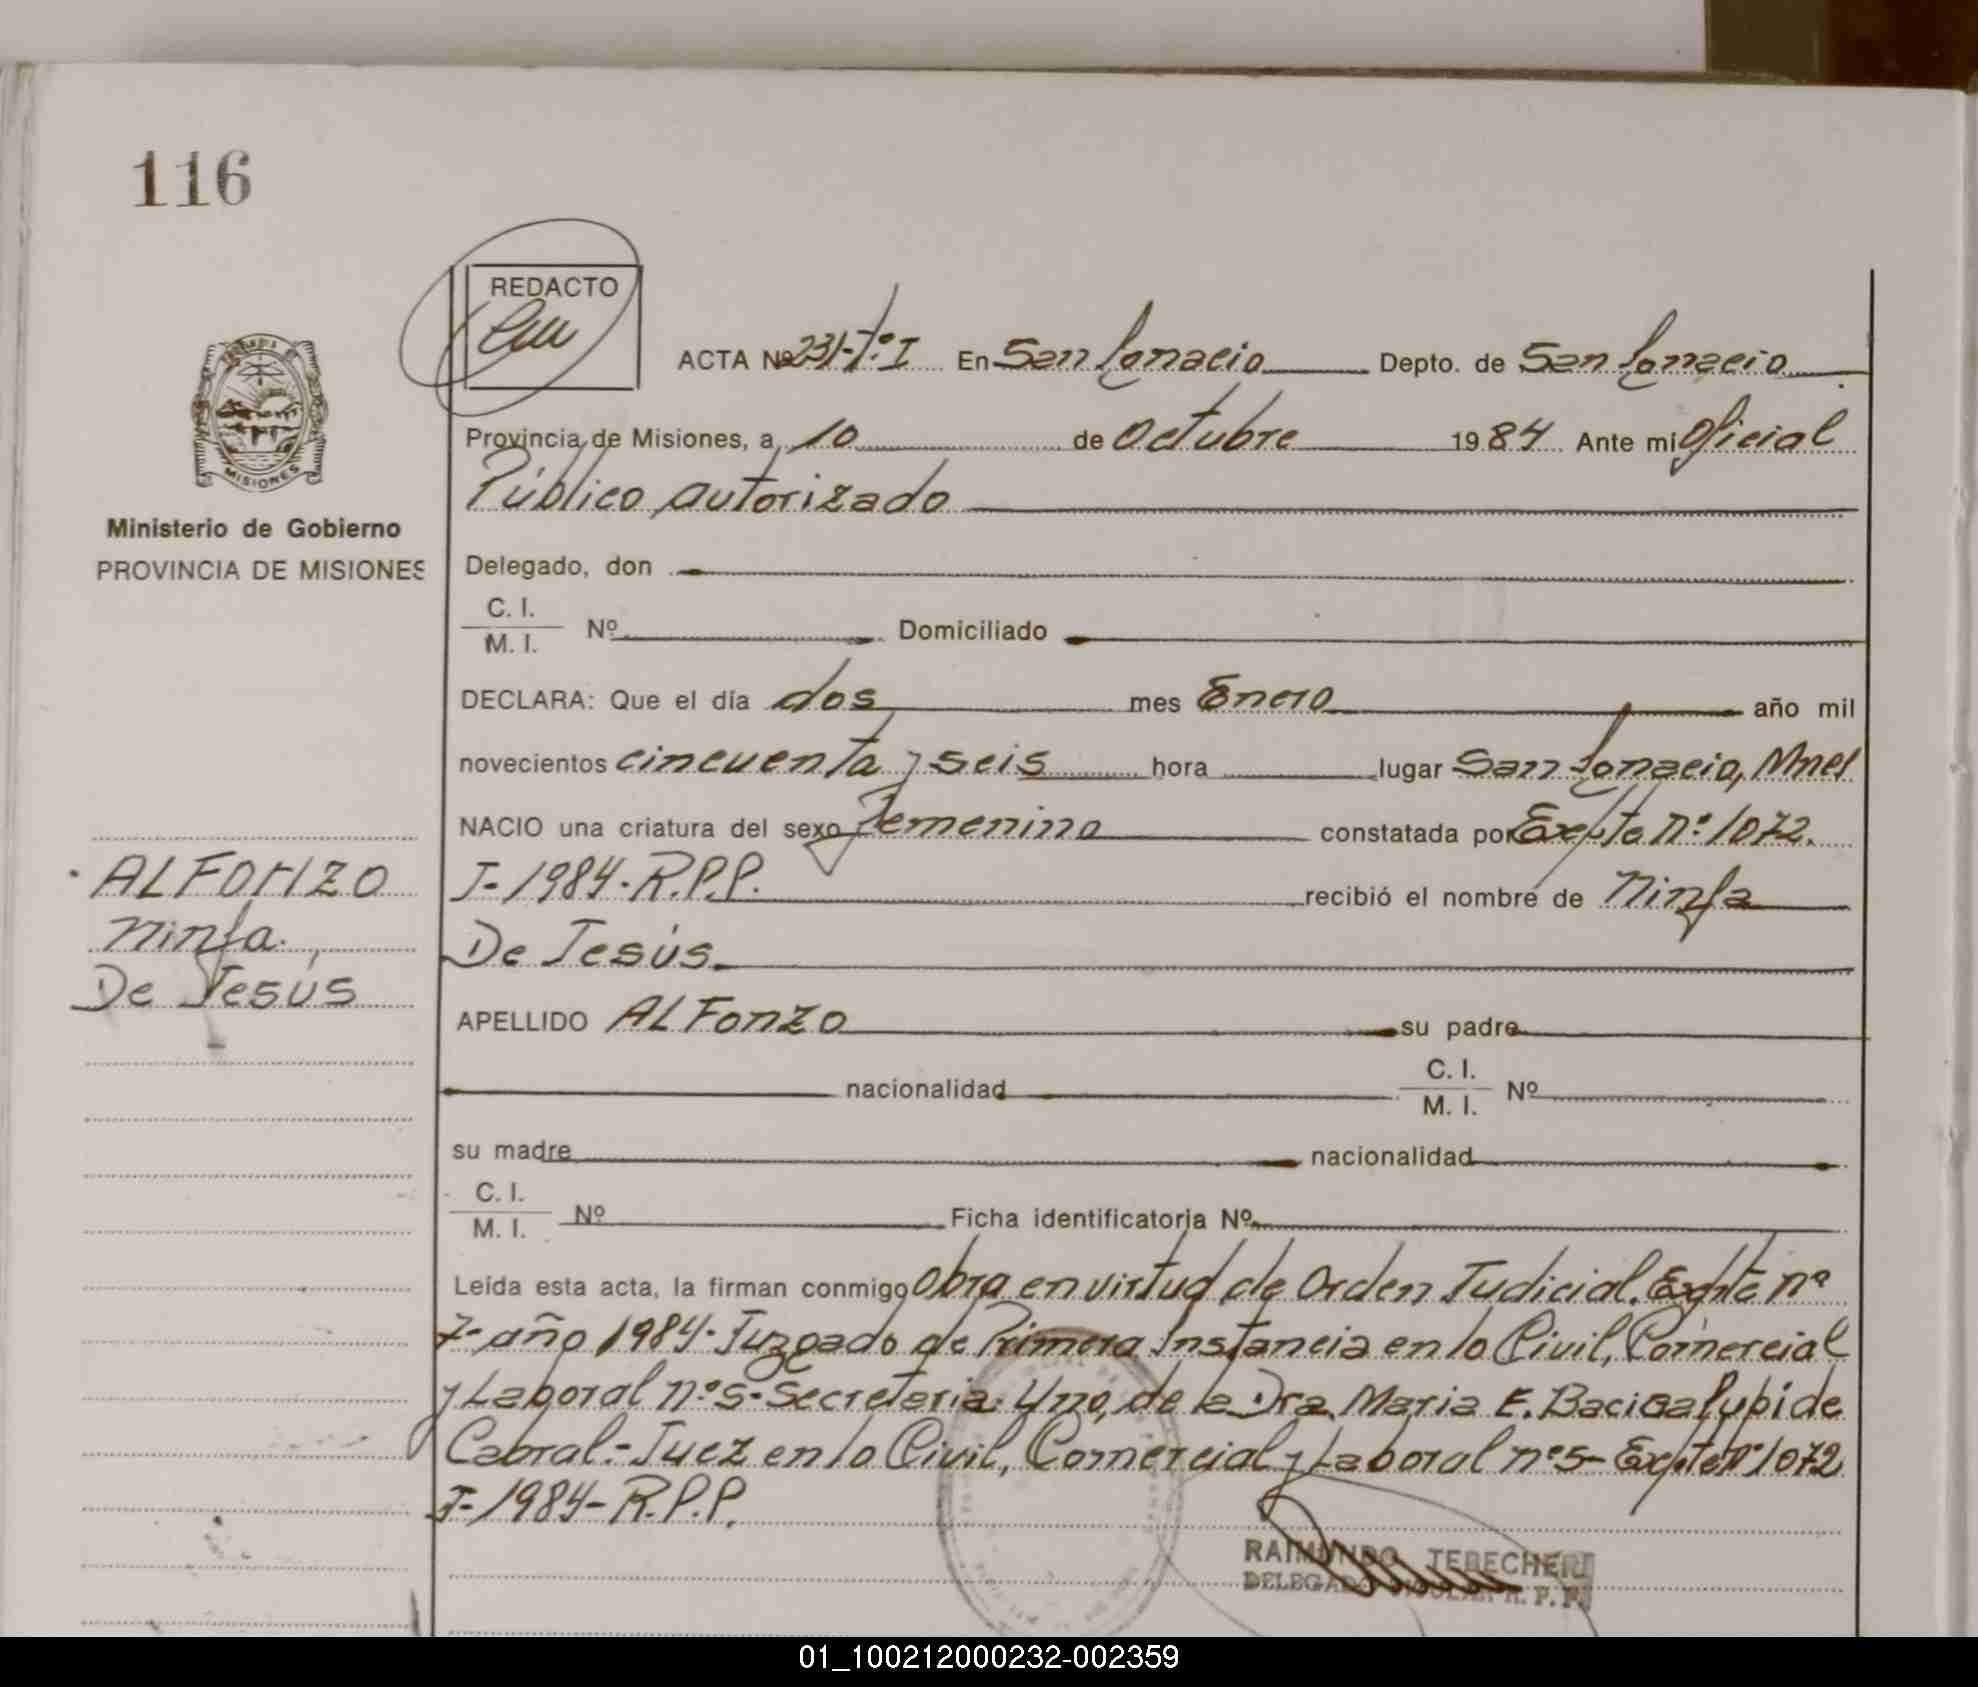 116
REDACTO
ACTA Nº 231-Tº I En San Ignacio Depto. de San Ignacio
Provincia de Misiones, a 10 de Octubre 1984 Ante mi Oficial
Público autorizado
MISIONES
Ministerio de Gobierno
PROVINCIA DE MISIONES
Delegado, don
C. I.
M. I. Nº Domiciliado
DECLARA: Que el día dos mes Enero año mil
novecientos cincuenta y seis hora lugar San Ignacio, Mnes
NACIO una criatura del sexo Femenino constatada por Expte Nº 1072.
J-1984-R.P.P. recibió el nombre de Ninfa
De Jesús
ALFONZO
Ninfa
De Jesús
APELLIDO ALFONZO su padre
nacionalidad C. I.
M. I. Nº
su madre nacionalidad
C. I.
M. I. Nº Ficha identificatoria Nº
Leída esta acta, la firman conmigo Obra en virtud de Orden Judicial. Expte nº
7- año 1984- Juzgado de Primera Instancia en lo Civil, Comercial
y Laboral nº 5- Secretaria Uno, de la Dra. Maria E. Bacigalupi de
Cabral- Juez en lo Civil, Comercial y Laboral nº 5- Expte Nº 1072
J-1984-R.P.P.
RAIMUNDO TEBECHERI
DELEGADO R. P. P.
01_100212000232-002359